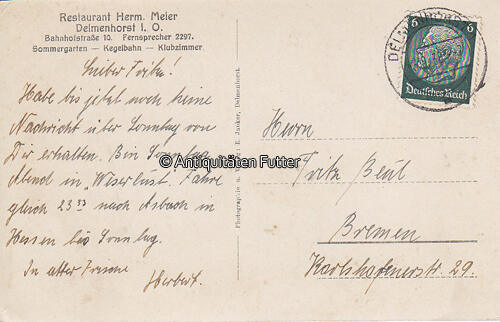 Restaurant Herm. Meier
Delmenhorst i. O.
Bahnhofstraße 10. Fernsprecher 2297.
Sommergarten — Kegelbahn — Klubzimmer
Lieber Fritz!
Habe bis jetzt noch keine
Nachricht über Sonntag von
Dir erhalten. Bin Sonntag
Abend in Weserlust. Fahre
gleich 23 33 nach Asbach in
Hessen bis Sonntag.
In alter Freundschaft
Herbert.
Photographie u. Verlag: E. Junker, Delmenhorst.
DELMENHORST
6 6
Deutsches Reich
Herrn
Fritz Beul
Bremen
Karlshafenerstr. 29.
© Antiquitäten Futter